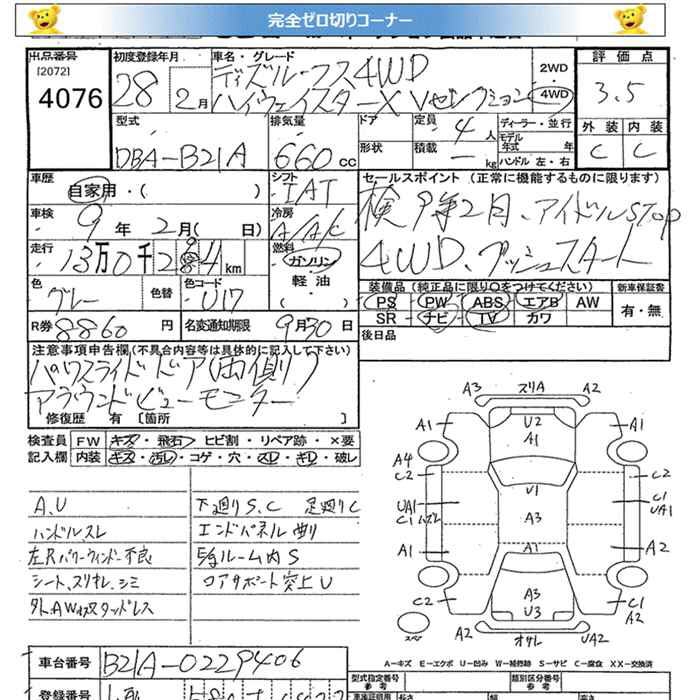 完全ゼロ切りコーナー
出品番号
[2072]
4076
初度登録年月
28 2月
車名・グレード
ディズルークス4WD
ハイウェイスターX Vセレクション
2WD
4WD
評価点
3.5
外装 内装
C C
型式
DBA-B21A
排気量
660 cc
ドア
形状
定員 4 人
積載 — kg
ディーラー・並行
モデル年式 年
ハンドル 左・右
車歴
自家用・( )
シフト
IAT
車検
9年2月( 日)
冷房
A/AC
走行
13万0千284km
燃料
ガソリン・
軽油・
( )
色
グレー
色替
色コード
U17
R券 8860 円
名変通知期限 9月30日
セールスポイント (正常に機能するものに限ります)
検9年2月、アイドルSTOP
4WD、プッシュスタート
装備品(純正品に限り○をつけてください)
PS PW ABS エアB AW
SR ナビ TV カワ
新車保証書
有・無
後日品
注意事項申告欄(不具合内容等は具体的に記入して下さい)
パワスライドドア(両側)
アラウンドビューモニター
修復歴 有 [箇所 ]
検査員 FW キズ・飛石・ヒビ割・リペア跡・×要
記入欄 内装 キズ・汚レ・コゲ・穴・スレ・キレ・破レ
A.U
ハンドルスレ
左Rパワーウィンドー不良
シート、スリオレ、シミ
下廻りS.C 足廻りC
エンドパネル曲り
ルーム内S
コアサポート突上U
A3 スリA A2
A1 U2 A1
A1
A4
C2 C2
U1
UA1 C1
C1 A3 UA1
A1 A1 A2
C2 A3 C1
U3 A2
スペア A2 オサレ UA2
車台番号 B21A-0229406
A-キズ E-エクボ U-凹み W-補修跡 S-サビ C-腐食 XX-交換済
登録番号
型式指定番号
類別区分番号